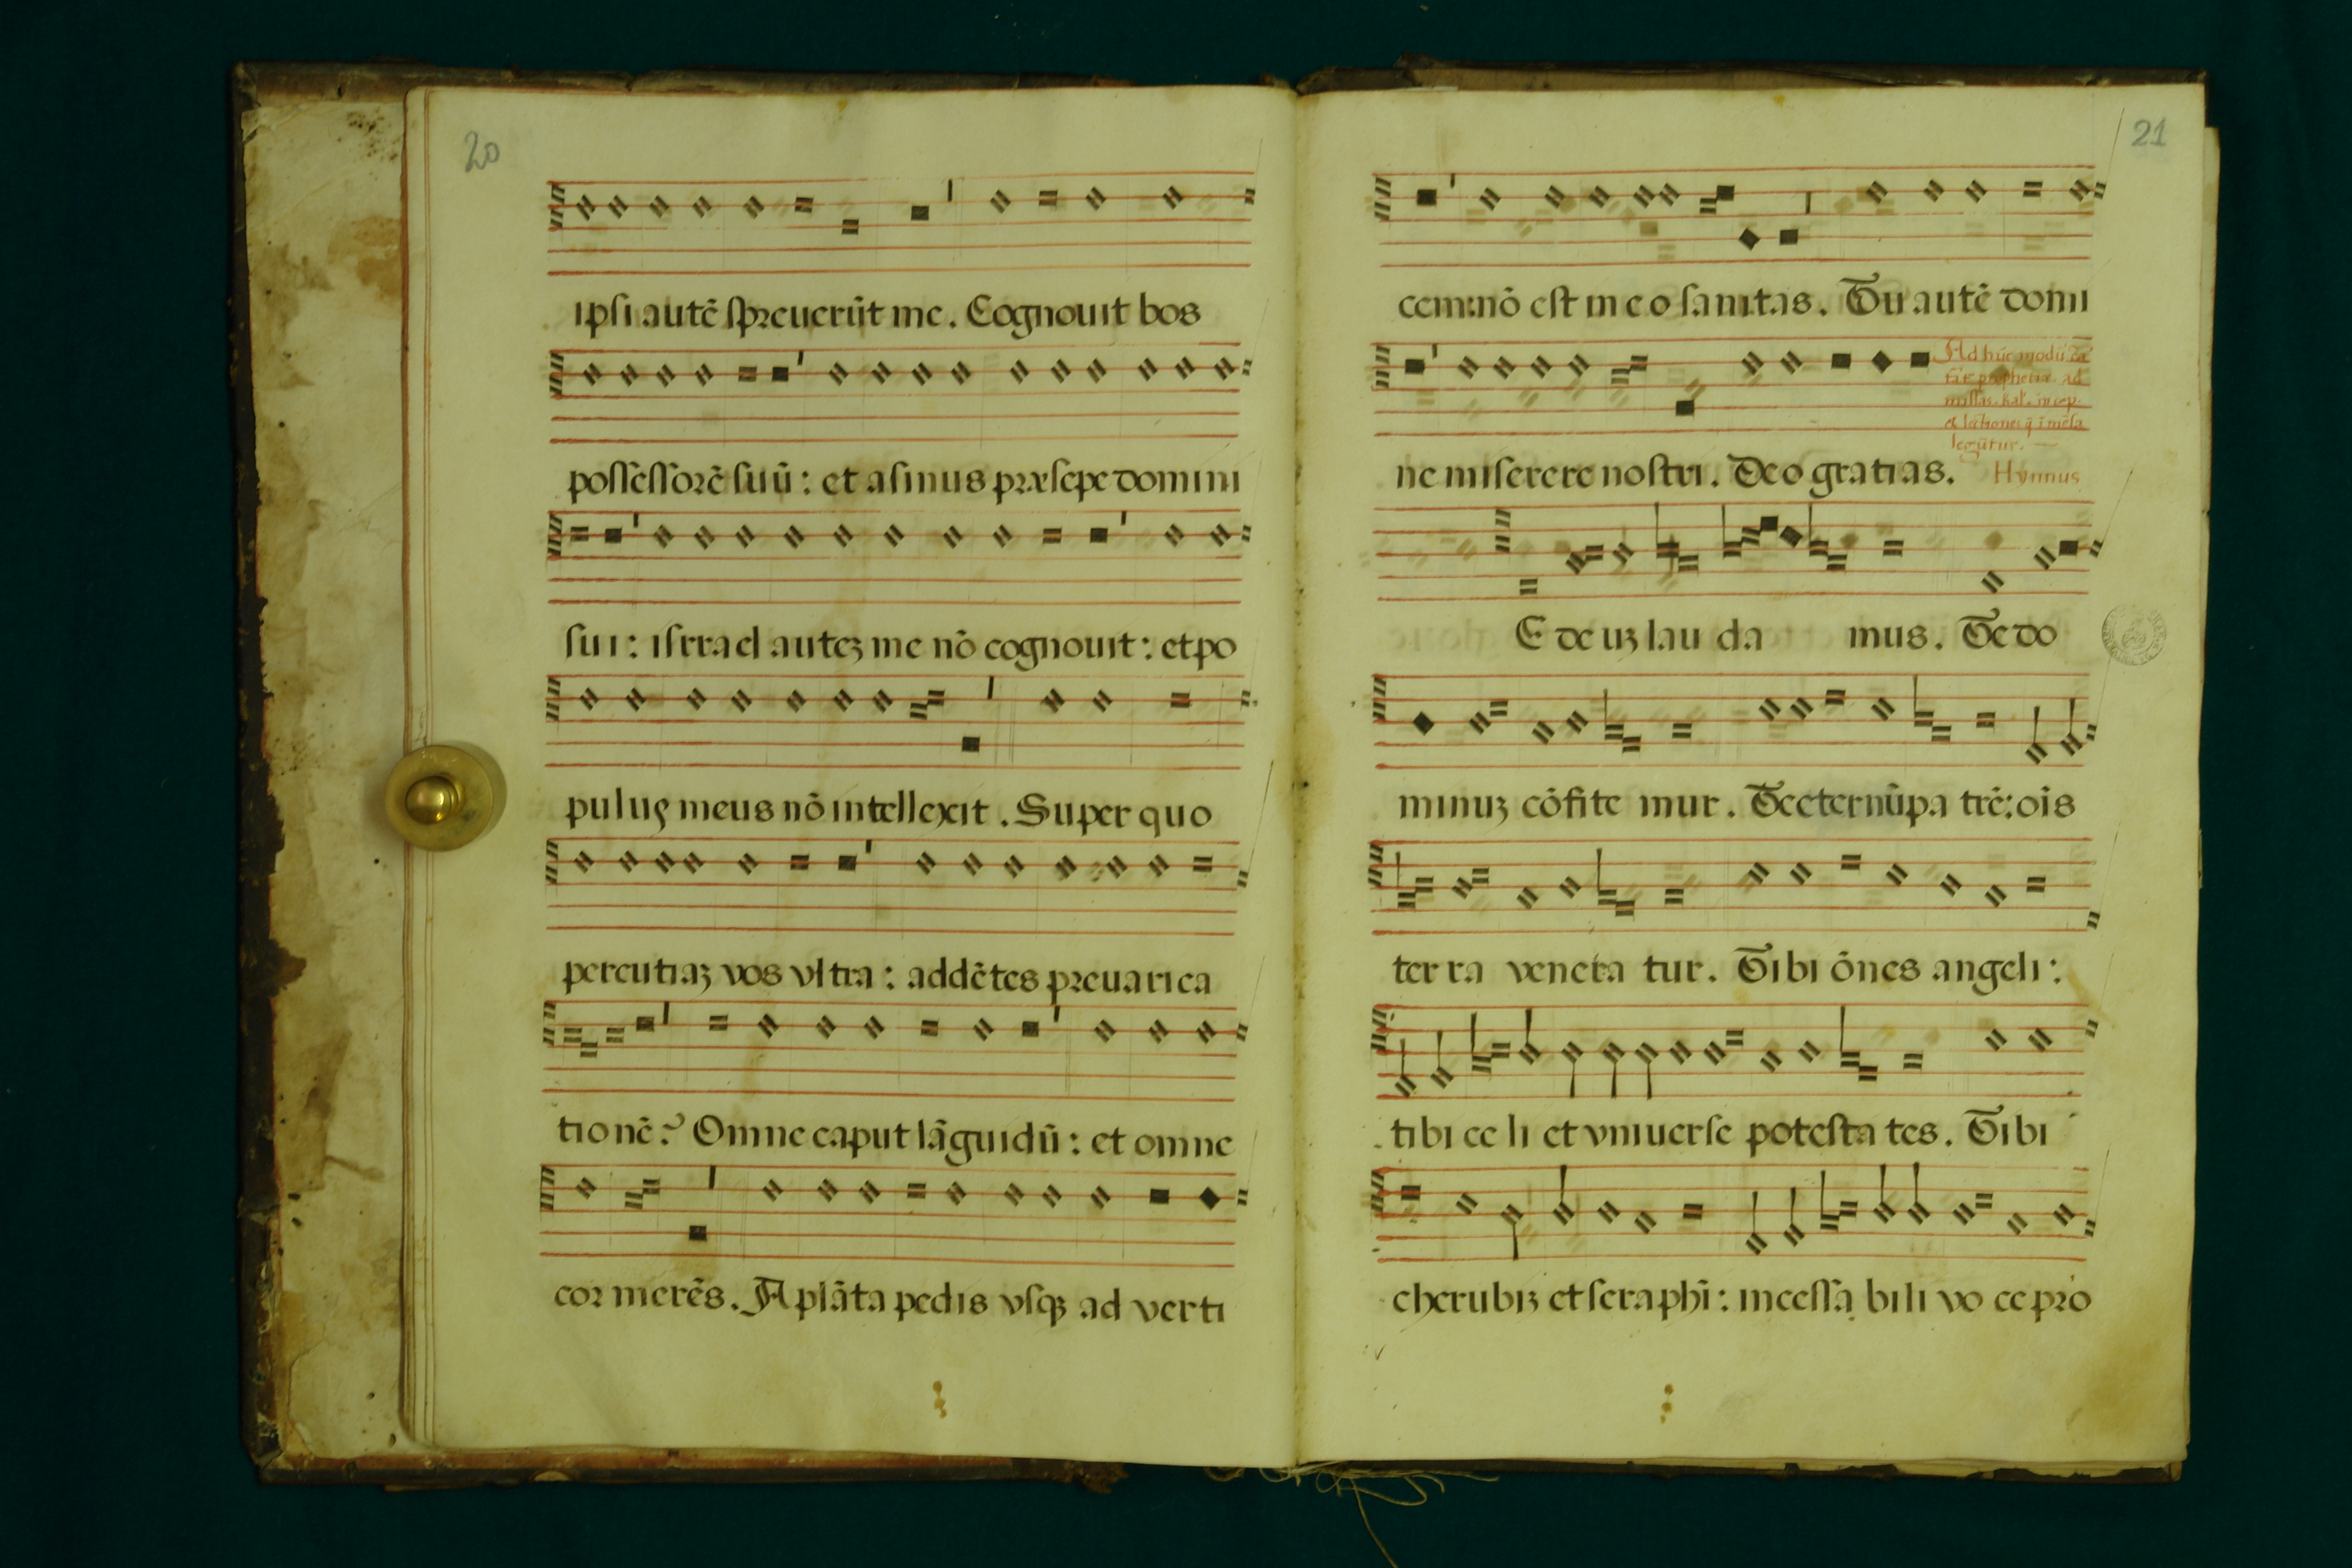 20
ipsi autē spreuerūt me. Cognouit bos
possessorē suū: et asinus præsepe domini
sui: isrrael autez me nō cognouit: et po
pulus meus nō intellexit. Super quo
percutiaz vos vltra: addētes preuarica
tionē? Omne caput lāguidū: et omne
cor merēs. A plāta pedis vsqz ad verti
21
cem: nō est in eo sanitas. Tu autē domi
ne miserere nostri. Deo gratias.
Ad hūc modū
prophetia ad
missas. kal.
lectiones
legūtur.
Hymnus
E deuz lau da mus. Te do
minuz cōfite mur. Te eternū pa trē: oīs
ter ra venera tur. Tibi ōnes angeli:
tibi ce li et vniuerse potesta tes. Tibi
cherubiz et seraphī: incessā bili vo ce pro